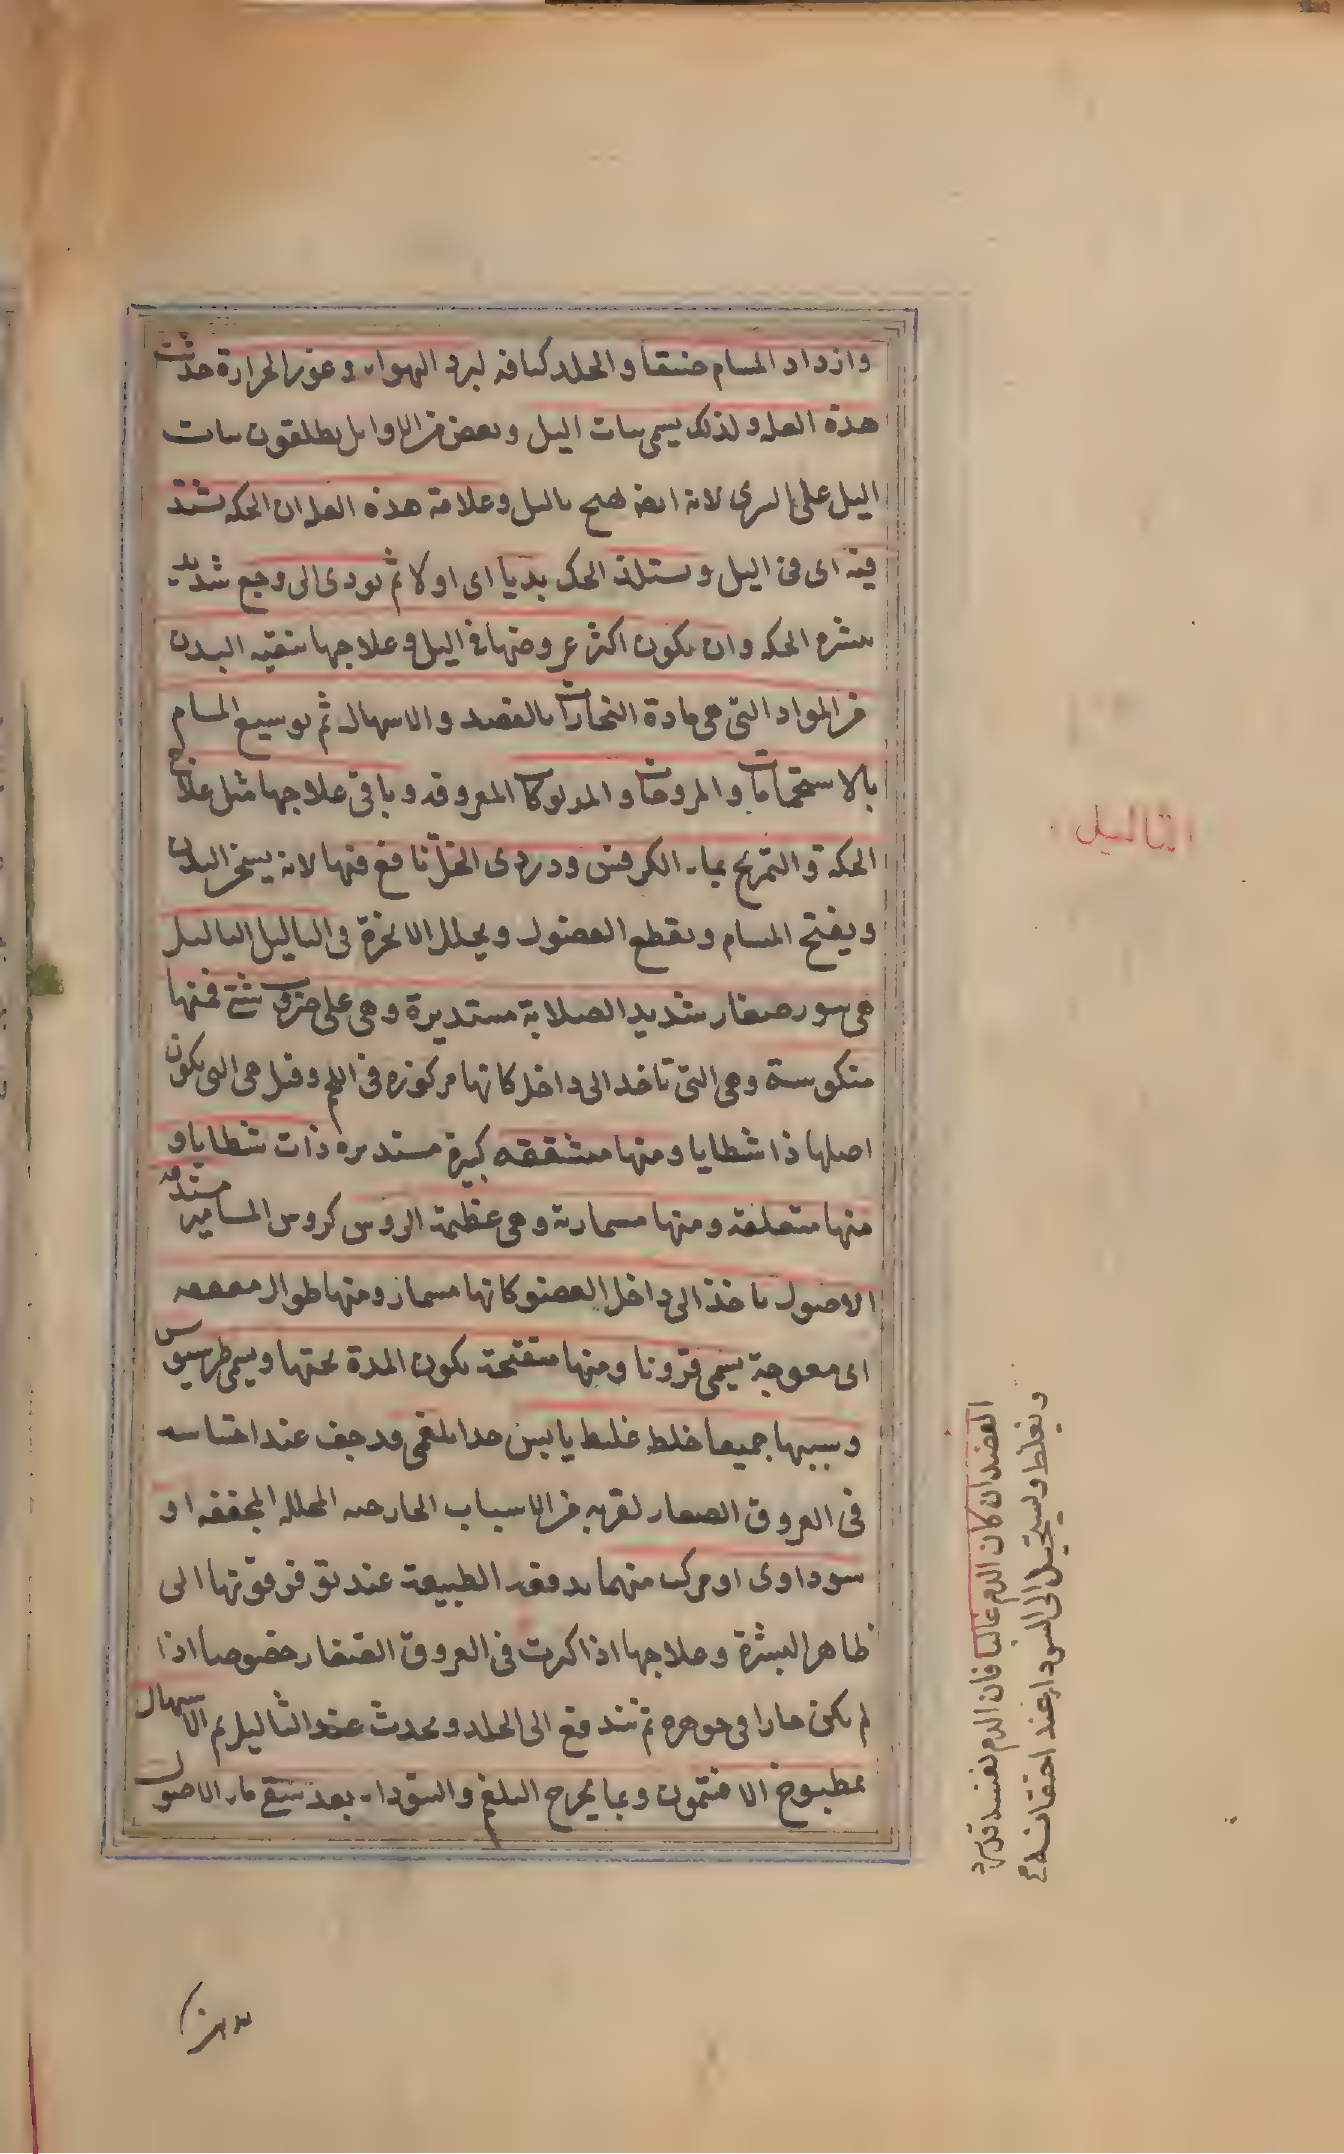 وازداد المسام ضيقا والجلد كثافه لبرد الهواء وغور الحرارة حدثت
هذة العله ولذلك يسمى بنات اليل وبعض من الاوايل يطلقون بنات
اليل على الشرى لانه ايضا يهيج باليل وعلامة هذه العله ان الحكه تشتد
فيه اى فى اليل ويستلذ الحك بديا اى اولا ثم يودى الى وجع شديد
بشره الحكه وان يكون اكثر عروضها فى اليل وعلاجها تنقيه البدن
من المواد التى هى مادة البخارات بالفصد والاسهال ثم توسيع المسام
بالاستحمامات والمروخات والمدلوكات المعروفه وباقى علاجها مثل علاج
الحكة والتمريخ بماء الكرفس ودردى الخل نافع فيها لانه يسخن البدن
ويفتح المسام ويقطع الفضول ويحلل الابخرة فى الثاليل الثاليل
هى بثور صغار شديد الصلابة مستديرة وهى على ضروب شتى فمنها
منكوسة وهى التى تاخد الى داخل كانها مركوزه فى اللحم وقيل هى التى يكون
اصلها ذا شظايا ومنها متشققه كبيرة مستديره ذات شظايا و
منها متعلقة ومنها مسمارية وهى عظيمة الروس كروس المسامير مستدقه
الاصول تاخذ الى داخل العضو كانها مسمار ومنها طوال معقفه
اى معوجة يسمى قرونا ومنها متفتحة يكون المدة تحتها ويسمى طرسيوس
وسببها جميعا خلط غليظ يابس جدا بلغمى قد جف عند احتباسه
فى العروق الصغار لقربه من الاسباب الخارجيه المحلله المجففه او
سوداوى او مركب منهما يدفعه الطبيعة عند توفر قوتها الى
ظاهر البشرة وعلاجها اذا كثرت فى العروق الصغار خصوصا اذا
لم يكن حارا فى جوهره ثم تندفع الى الجلد ويحدث عنه الثاليل ثم الاسهال
بمطبوخ الافتمون وبما يخرج البلغم والسوداء بعد سقى ماء الاصول
الثاليل
الفصد ان كان الدم غالبا فان الدم يفسد قد يبرد
ويغلظ ويستحيل الى السوداء عند احتقانه